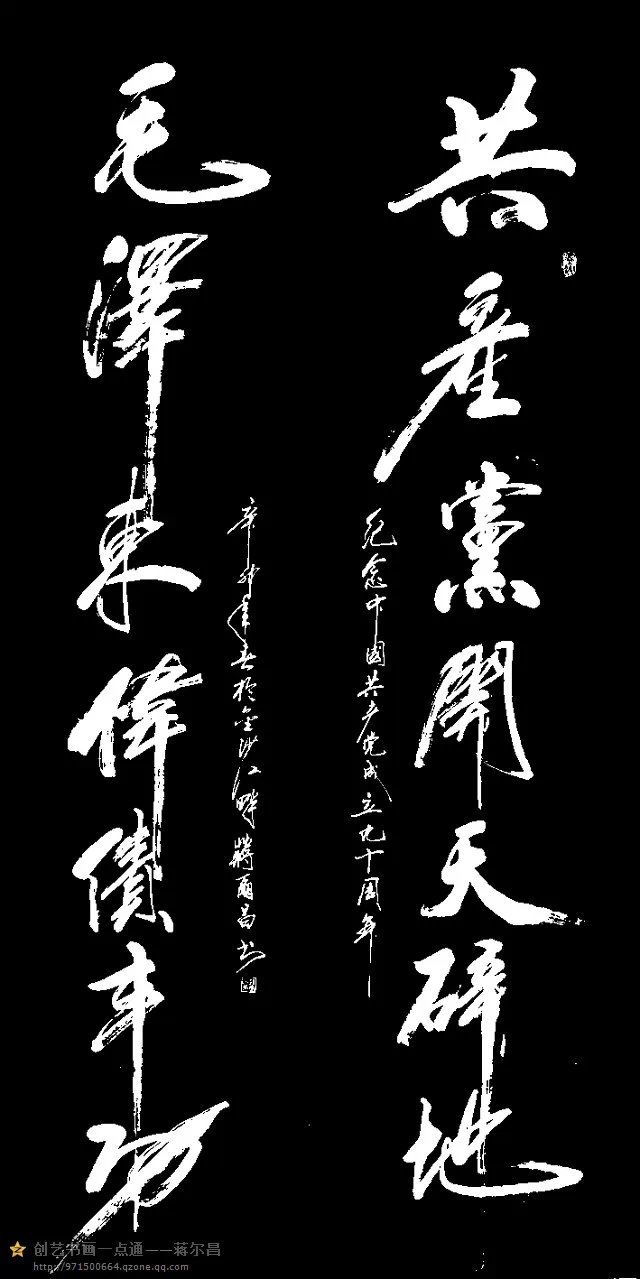 共產黨開天辟地
紀念中國共产党成立九十周年
辛卯年春於金沙江畔蔣爾昌书
毛澤東偉績丰功
创艺书画一点通——蒋尔昌
http://971500664.qzone.qq.com